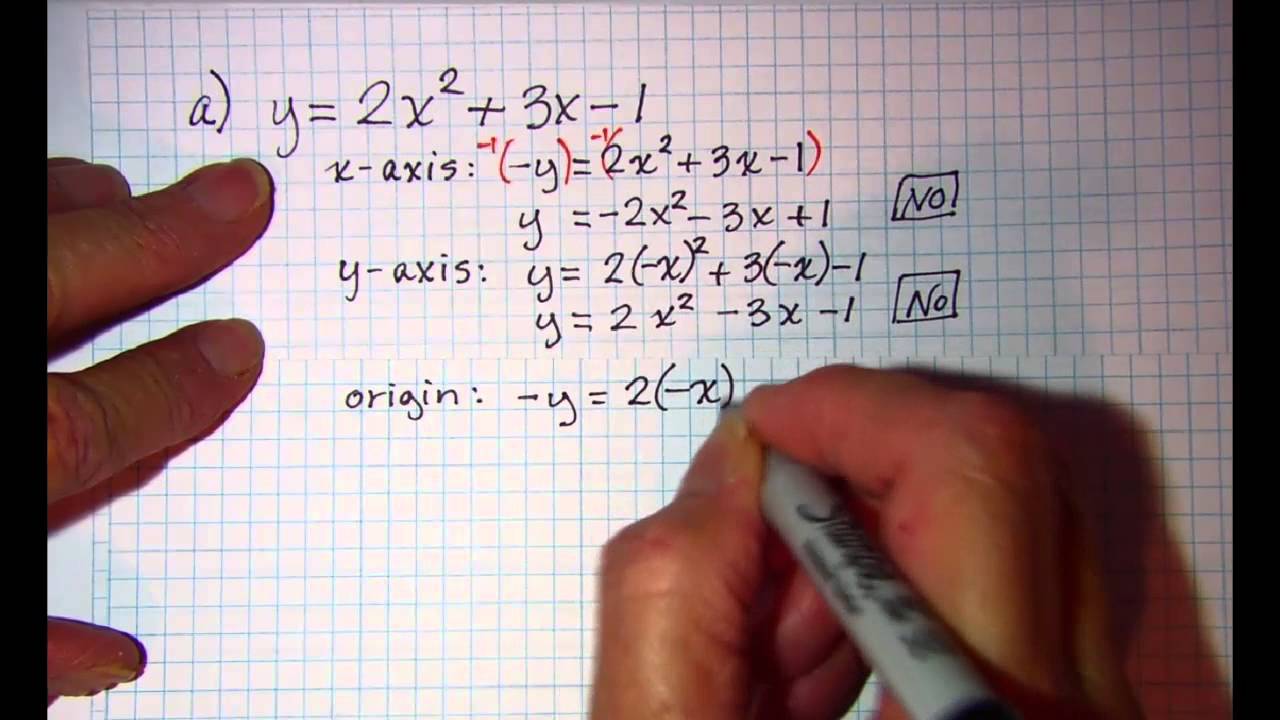 a) y = 2x² + 3x - 1
x-axis: -1(-y) = -1(2x² + 3x - 1)
y = -2x² - 3x + 1 NO!
y-axis: y = 2(-x)² + 3(-x) - 1
y = 2x² - 3x - 1 No
origin: -y = 2(-x)